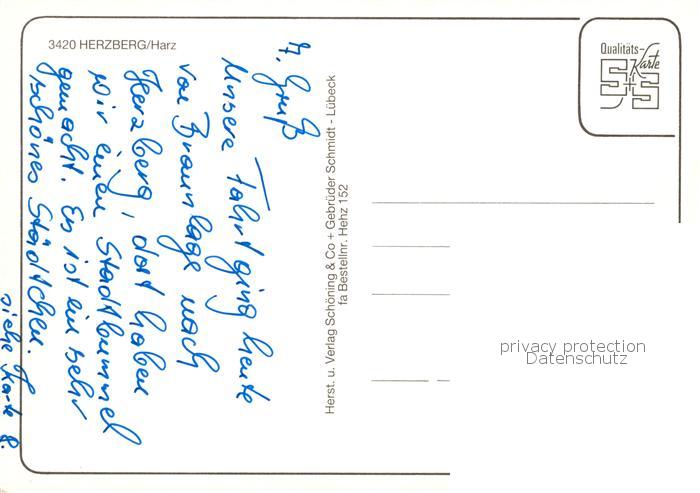 3420 HERZBERG/Harz
7. Gruß
Unsere Fahrt ging heute
von Braunlage nach
Herzberg, dort haben
wir einen Stadtbummel
gemacht. Es ist ein sehr
schönes Städtchen.
siehe Karte 8.
Herst. u. Verlag Schöning & Co + Gebrüder Schmidt - Lübeck
fa Bestellnr. Hehz 152
Qualitäts-
Karte
S+S
privacy protection
Datenschutz